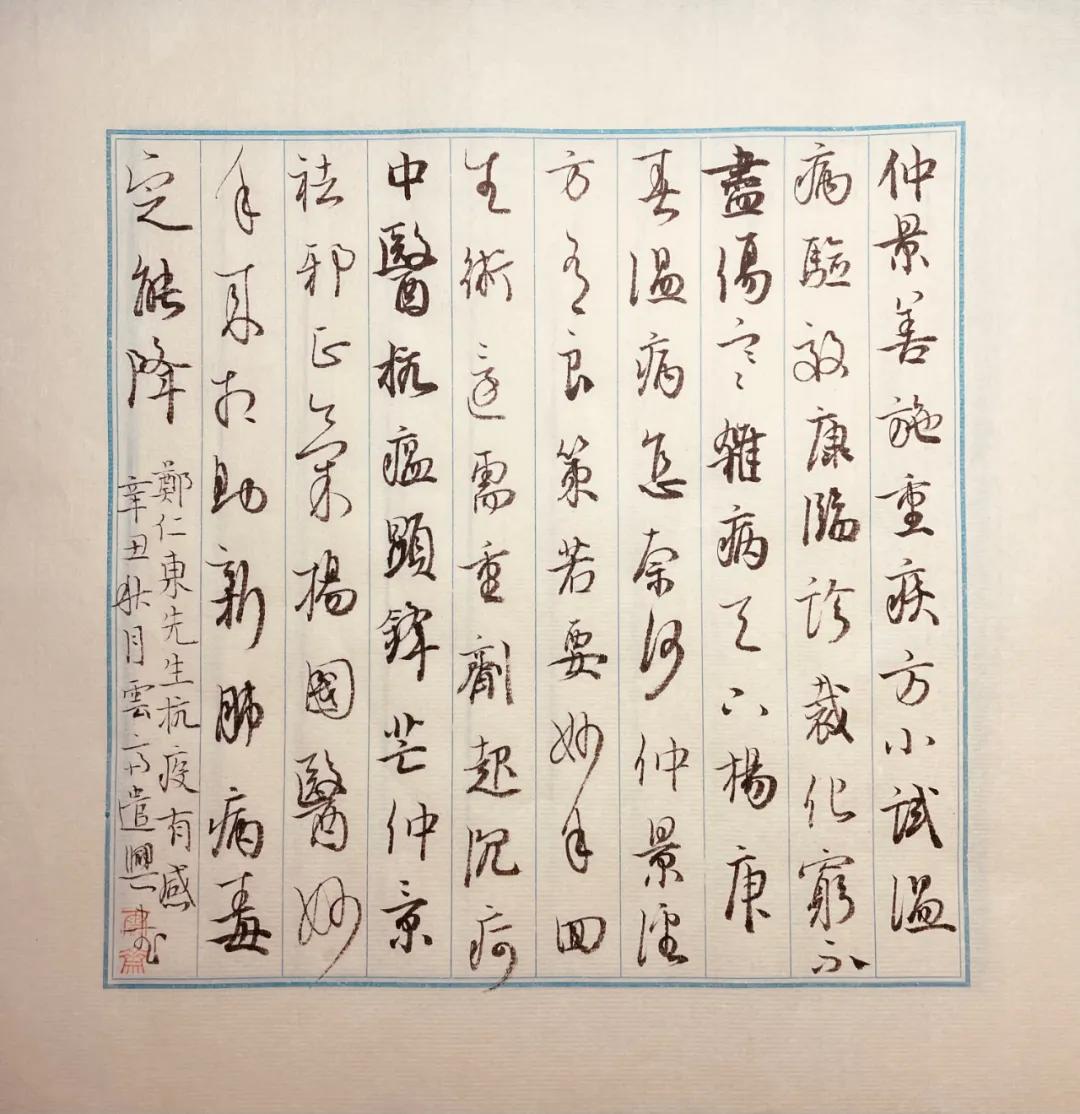 仲景善施重疾方小試溫
病驗效康臨診裁化窮不
盡傷寒雜病天下揚庚
春溫病怎奈何仲景經
方有良策若要妙手回
生術還需重劑起沉疴
中醫抗瘟顯鋒芒仲景
祛邪正氣揚國醫妙
手來相助新肺病毒
定能降
鄭仁東先生抗疫有感
辛丑秋月雲遣興